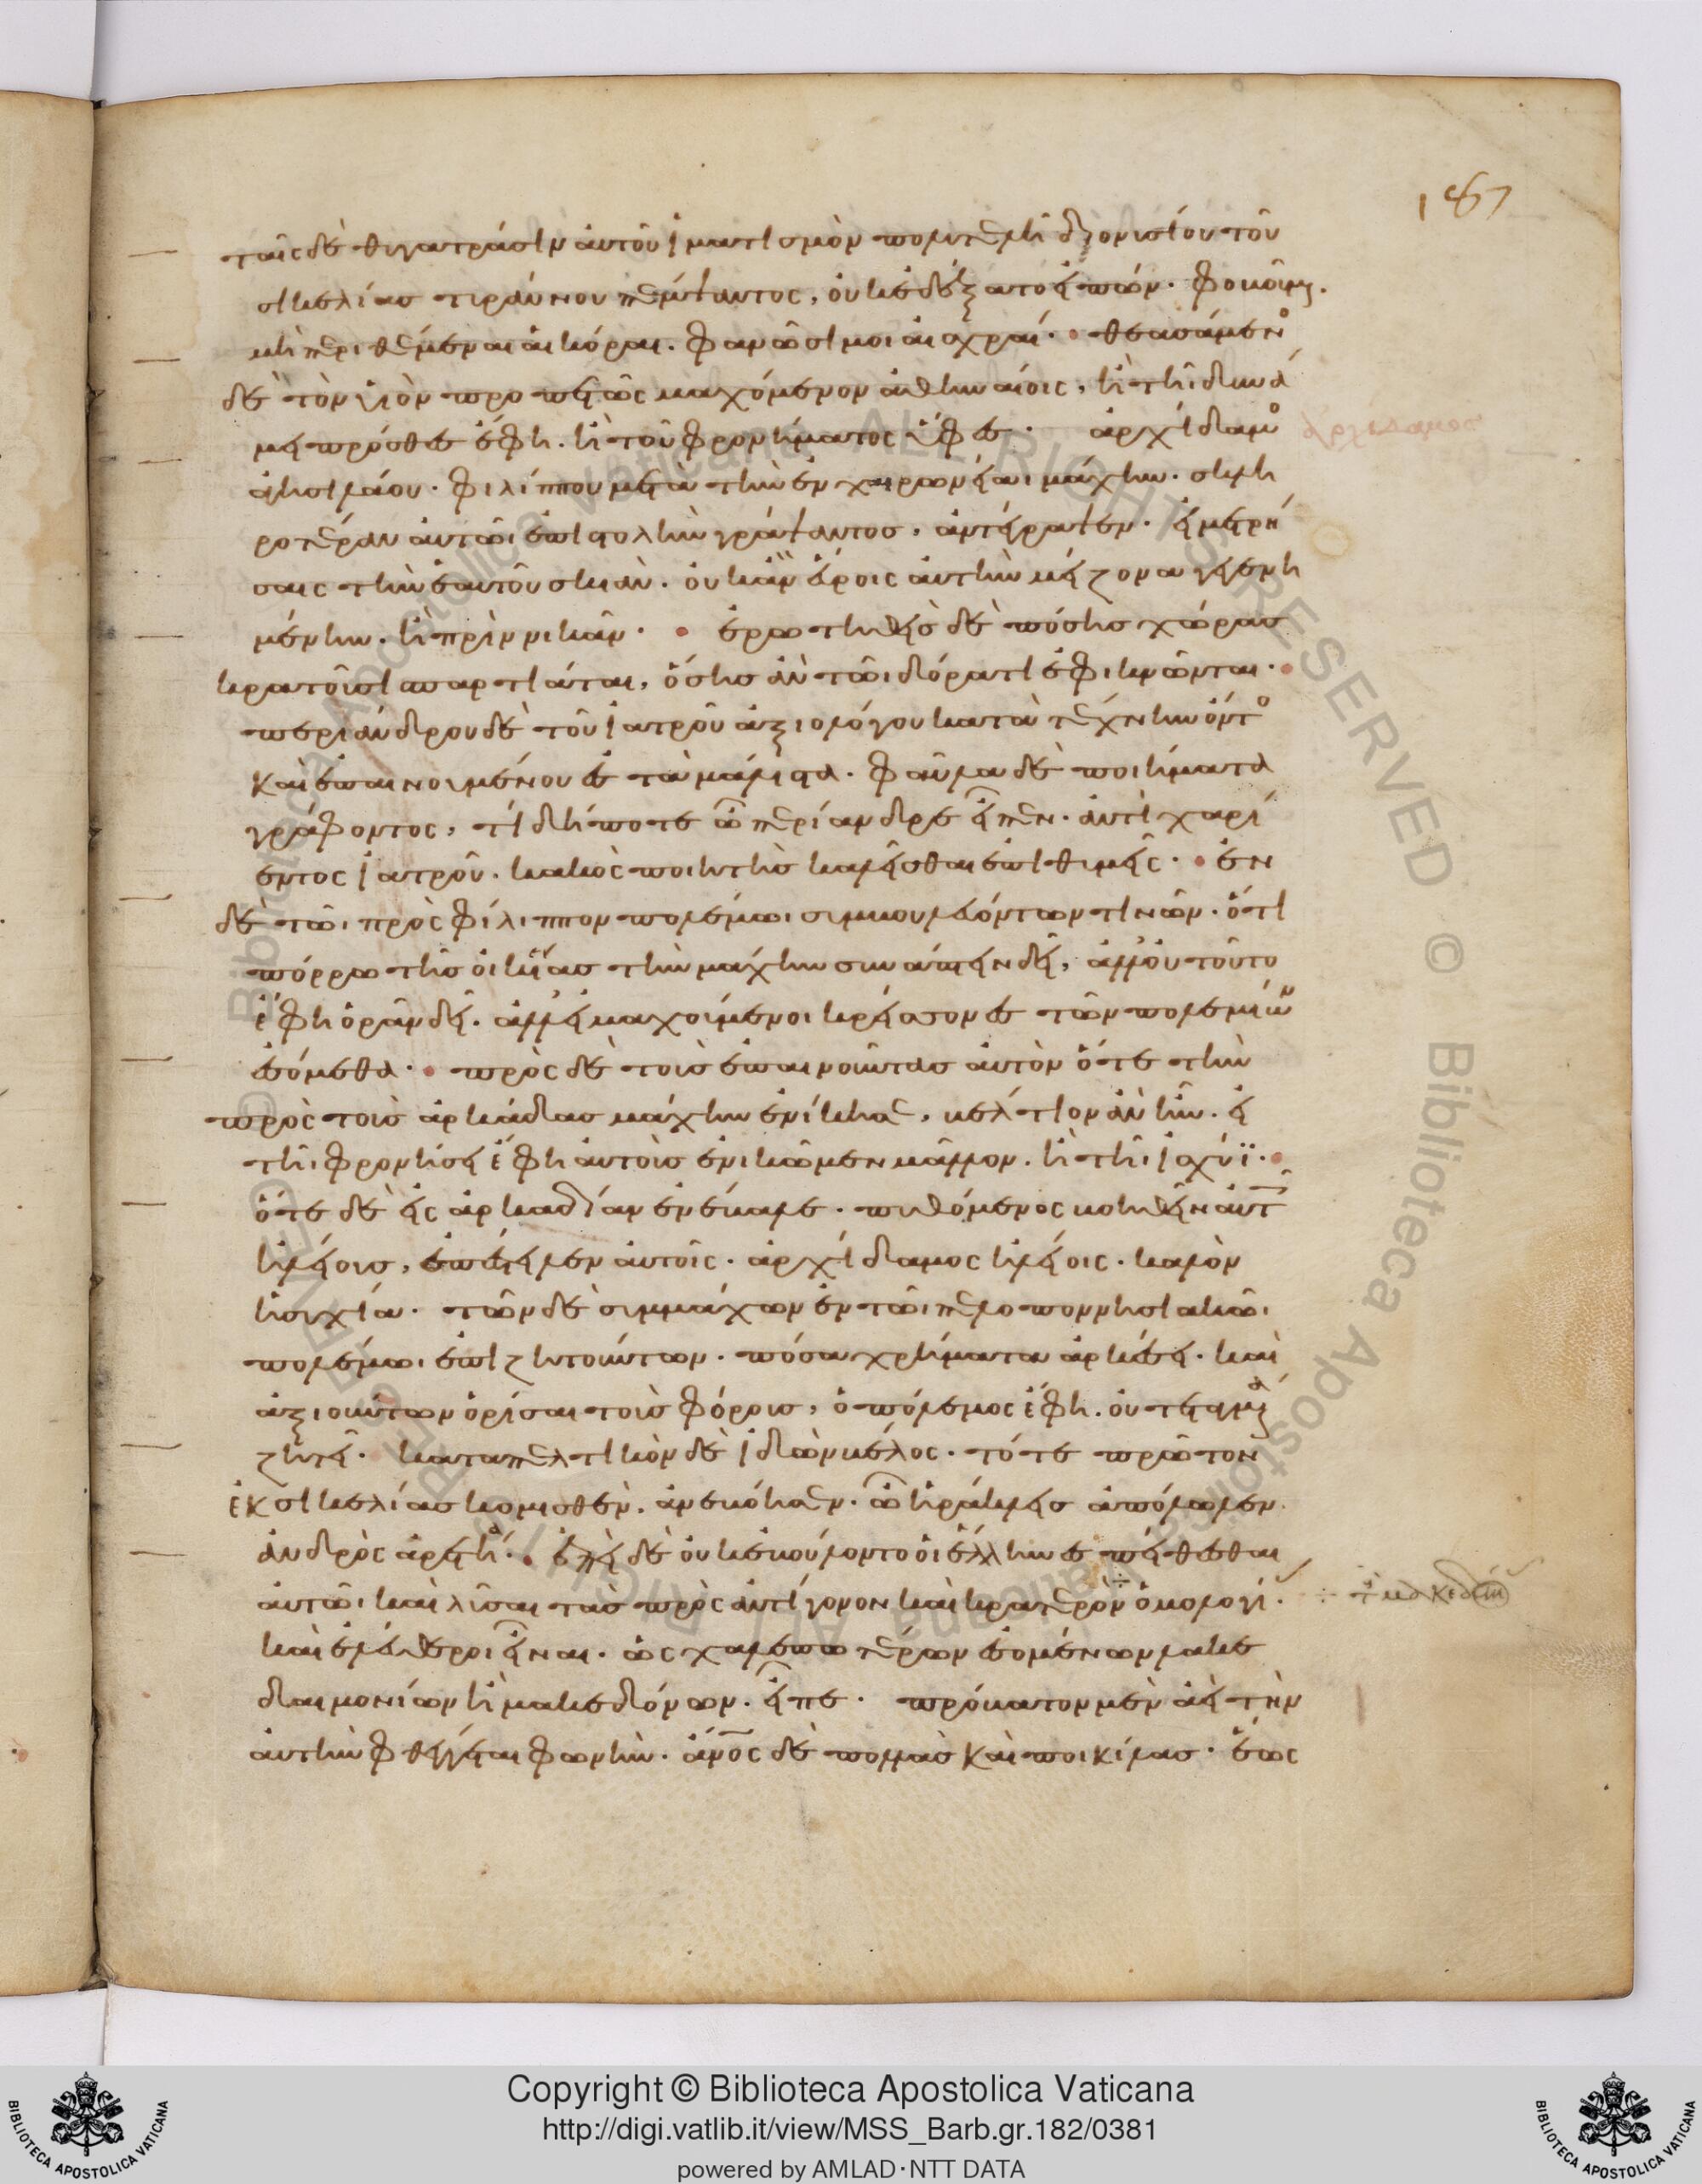 187
ταῖς δὲ θυγατράσιν αὐτοῦ ἱματισμὸν πολυτελῆ διονυσίου τοῦ
σικελίας τυράννου πέμψαντος, οὐκ ἐδέξατο εἰπών· φοβοῦμαι
μὴ περιθέμεναι αἱ κόραι. φανῶσί μοι αἰσχραί· θεασάμενος
δὲ τὸν υἱὸν προπετῶς μαχόμενον ἀθηναίοις, ἢ τῆι δυνά
μει πρόσθες ἔφη. ἢ τοῦ φρονήματος ὕφες· ἀρχίδαμος
ἀρχίδαμος
ἀγησιλάου· φιλίππου μετὰ τὴν ἐν χαιρωνείαι μάχην. σκλη
ροτέραν αὐτῶι ἐπιστολὴν γράψαντος, ἀντέγραψεν· εἰ μετρή
σαις τὴν ἑαυτοῦ σκιὰν. οὐκ ἂν εὕροις αὐτὴν μείζονα γεγενη
μένην. ἢ πρὶν νικᾶν· ἐρωτηθεὶς δὲ πόσης χώρας
κρατοῦσι σπαρτιάται, ὅσης ἂν τῶι δόρατι ἐφικνῶνται·
περιάνδρου δὲ τοῦ ἰατροῦ ἀξιολόγου κατὰ τέχνην ὄντος
καὶ ἐπαινουμένου ἐς τὰ μάλιστα. φαῦλα δὲ ποιήματα
γράφοντος, τί δήποτε ὦ περίανδρε εἶπεν· ἀντὶ χαρί
εντος ἰατροῦ. κακὸς ποιητὴς καλεῖσθαι ἐπιθυμεῖς· ἐν
δὲ τῶι πρὸς φίλιππον πολέμωι συμβουλευόντων τινῶν· ὅτι
πόρρω τῆς οἰκείας τὴν μάχην συνάπτειν δεῖ, ἀλλ' οὐ τοῦτο
ἔφη ὁρᾶν δεῖ. ἀλλ' εἰ μαχοίμενοι κρείσσονες τῶν πολεμίων
ἐσόμεθα· πρὸς δὲ τοὺς ἐπαινοῦντας αὐτὸν ὅτε τὴν
πρὸς τοὺς ἀρκάδας μάχην ἐνίκησε, βέλτιον ἂν ἦν. εἰ
τῆι φρονήσει ἔφη αὐτοὺς ἐνικῶμεν μᾶλλον. ἢ τῆι ἰσχύϊ·
ὅτε δὲ εἰς ἀρκαδίαν ἐνέβαλε. πυθόμενος βοηθεῖν αὐτοῖς
ἠλείους, ἐπέστειλεν αὐτοῖς. ἀρχίδαμος ἠλείοις. καλὸν
ἡσυχία. τῶν δὲ συμμάχων ἐν τῶι πελοποννησιακῶι
πολέμωι ἐπιζητούντων. πόσα χρήματα ἀρκέσει. καὶ
ἀξιούντων ὁρίσαι τοὺς φόρους, ὁ πόλεμος ἔφη. οὐ τεταγμένα
ζητεῖ· καταπελτικὸν δὲ ἰδὼν βέλος. τότε πρῶτον
ἐκ σικελίας κομισθὲν. ἀνεβόησεν. ὦ ἡράκλεις ἀπόλωλεν
ἀνδρὸς ἀρετά· ἐπεὶ δὲ οὐκ ἐβούλοντο οἱ ἕλληνες πείθεσθαι
αὐτῶι καὶ λῦσαι τὰς πρὸς ἀντίγονον καὶ κρατερὸν ὁμολογί
÷ τὸν μακεδόνα
καὶ ἐλεύθεροι εἶναι. ὡς χαλεπωτέρων ἐσομένων λακε
δαιμονίων ἢ μακεδόνων. εἶπε· πρόβατον μὲν ἀεὶ τὴν
αὐτὴν φθέγγεται φωνὴν. ἄνος δὲ πολλὰς καὶ ποικίλας· ἕως
Copyright © Biblioteca Apostolica Vaticana
http://digi.vatlib.it/view/MSS_Barb.gr.182/0381
powered by AMLAD·NTT DATA
BIBLIOTECA APOSTOLICA VATICANA
BIBLIOTECA APOSTOLICA VATICANA